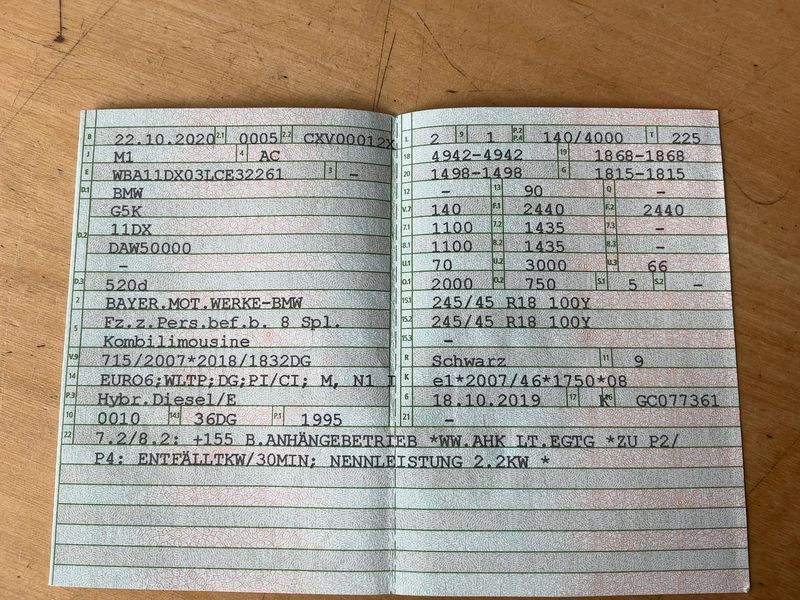 B 22.10.2020 2.1 0005 2.2 CXV00012X
J M1 4 AC
E WBA11DX03LCE32261 3 -
D.1 BMW
G5K
D.2 11DX
DAW50000
-
D.3 520d
2 BAYER.MOT.WERKE-BMW
5 Fz.z.Pers.bef.b. 8 Spl.
Kombilimousine
V.9 715/2007*2018/1832DG
14 EURO6;WLTP;DG;PI/CI; M, N1 I
P.3 Hybr.Diesel/E
10 0010 14.1 36DG P.1 1995
L 2 9 1 P.2 P.4 140/4000 T 225
18 4942-4942 19 1868-1868
20 1498-1498 G 1815-1815
12 - 13 90 Q -
V.7 140 F.1 2440 F.2 2440
7.1 1100 7.2 1435 7.3 -
8.1 1100 8.2 1435 8.3 -
U.1 70 U.2 3000 U.3 66
O.1 2000 O.2 750 S.1 5 S.2 -
15.1 245/45 R18 100Y
15.2 245/45 R18 100Y
15.3 -
R Schwarz 11 9
K e1*2007/46*1750*08
6 18.10.2019 17 K 16 GC077361
21 -
22 7.2/8.2: +155 B.ANHÄNGEBETRIEB *WW.AHK LT.EGTG *ZU P2/
P4: ENTFÄLLTKW/30MIN; NENNLEISTUNG 2.2KW *